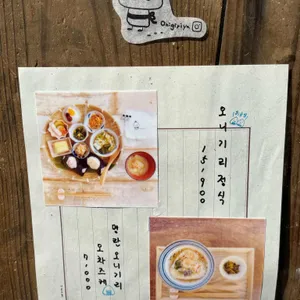 Onigiriya
오니기리정식
15,900
명란오니기리
오차즈케
7,000